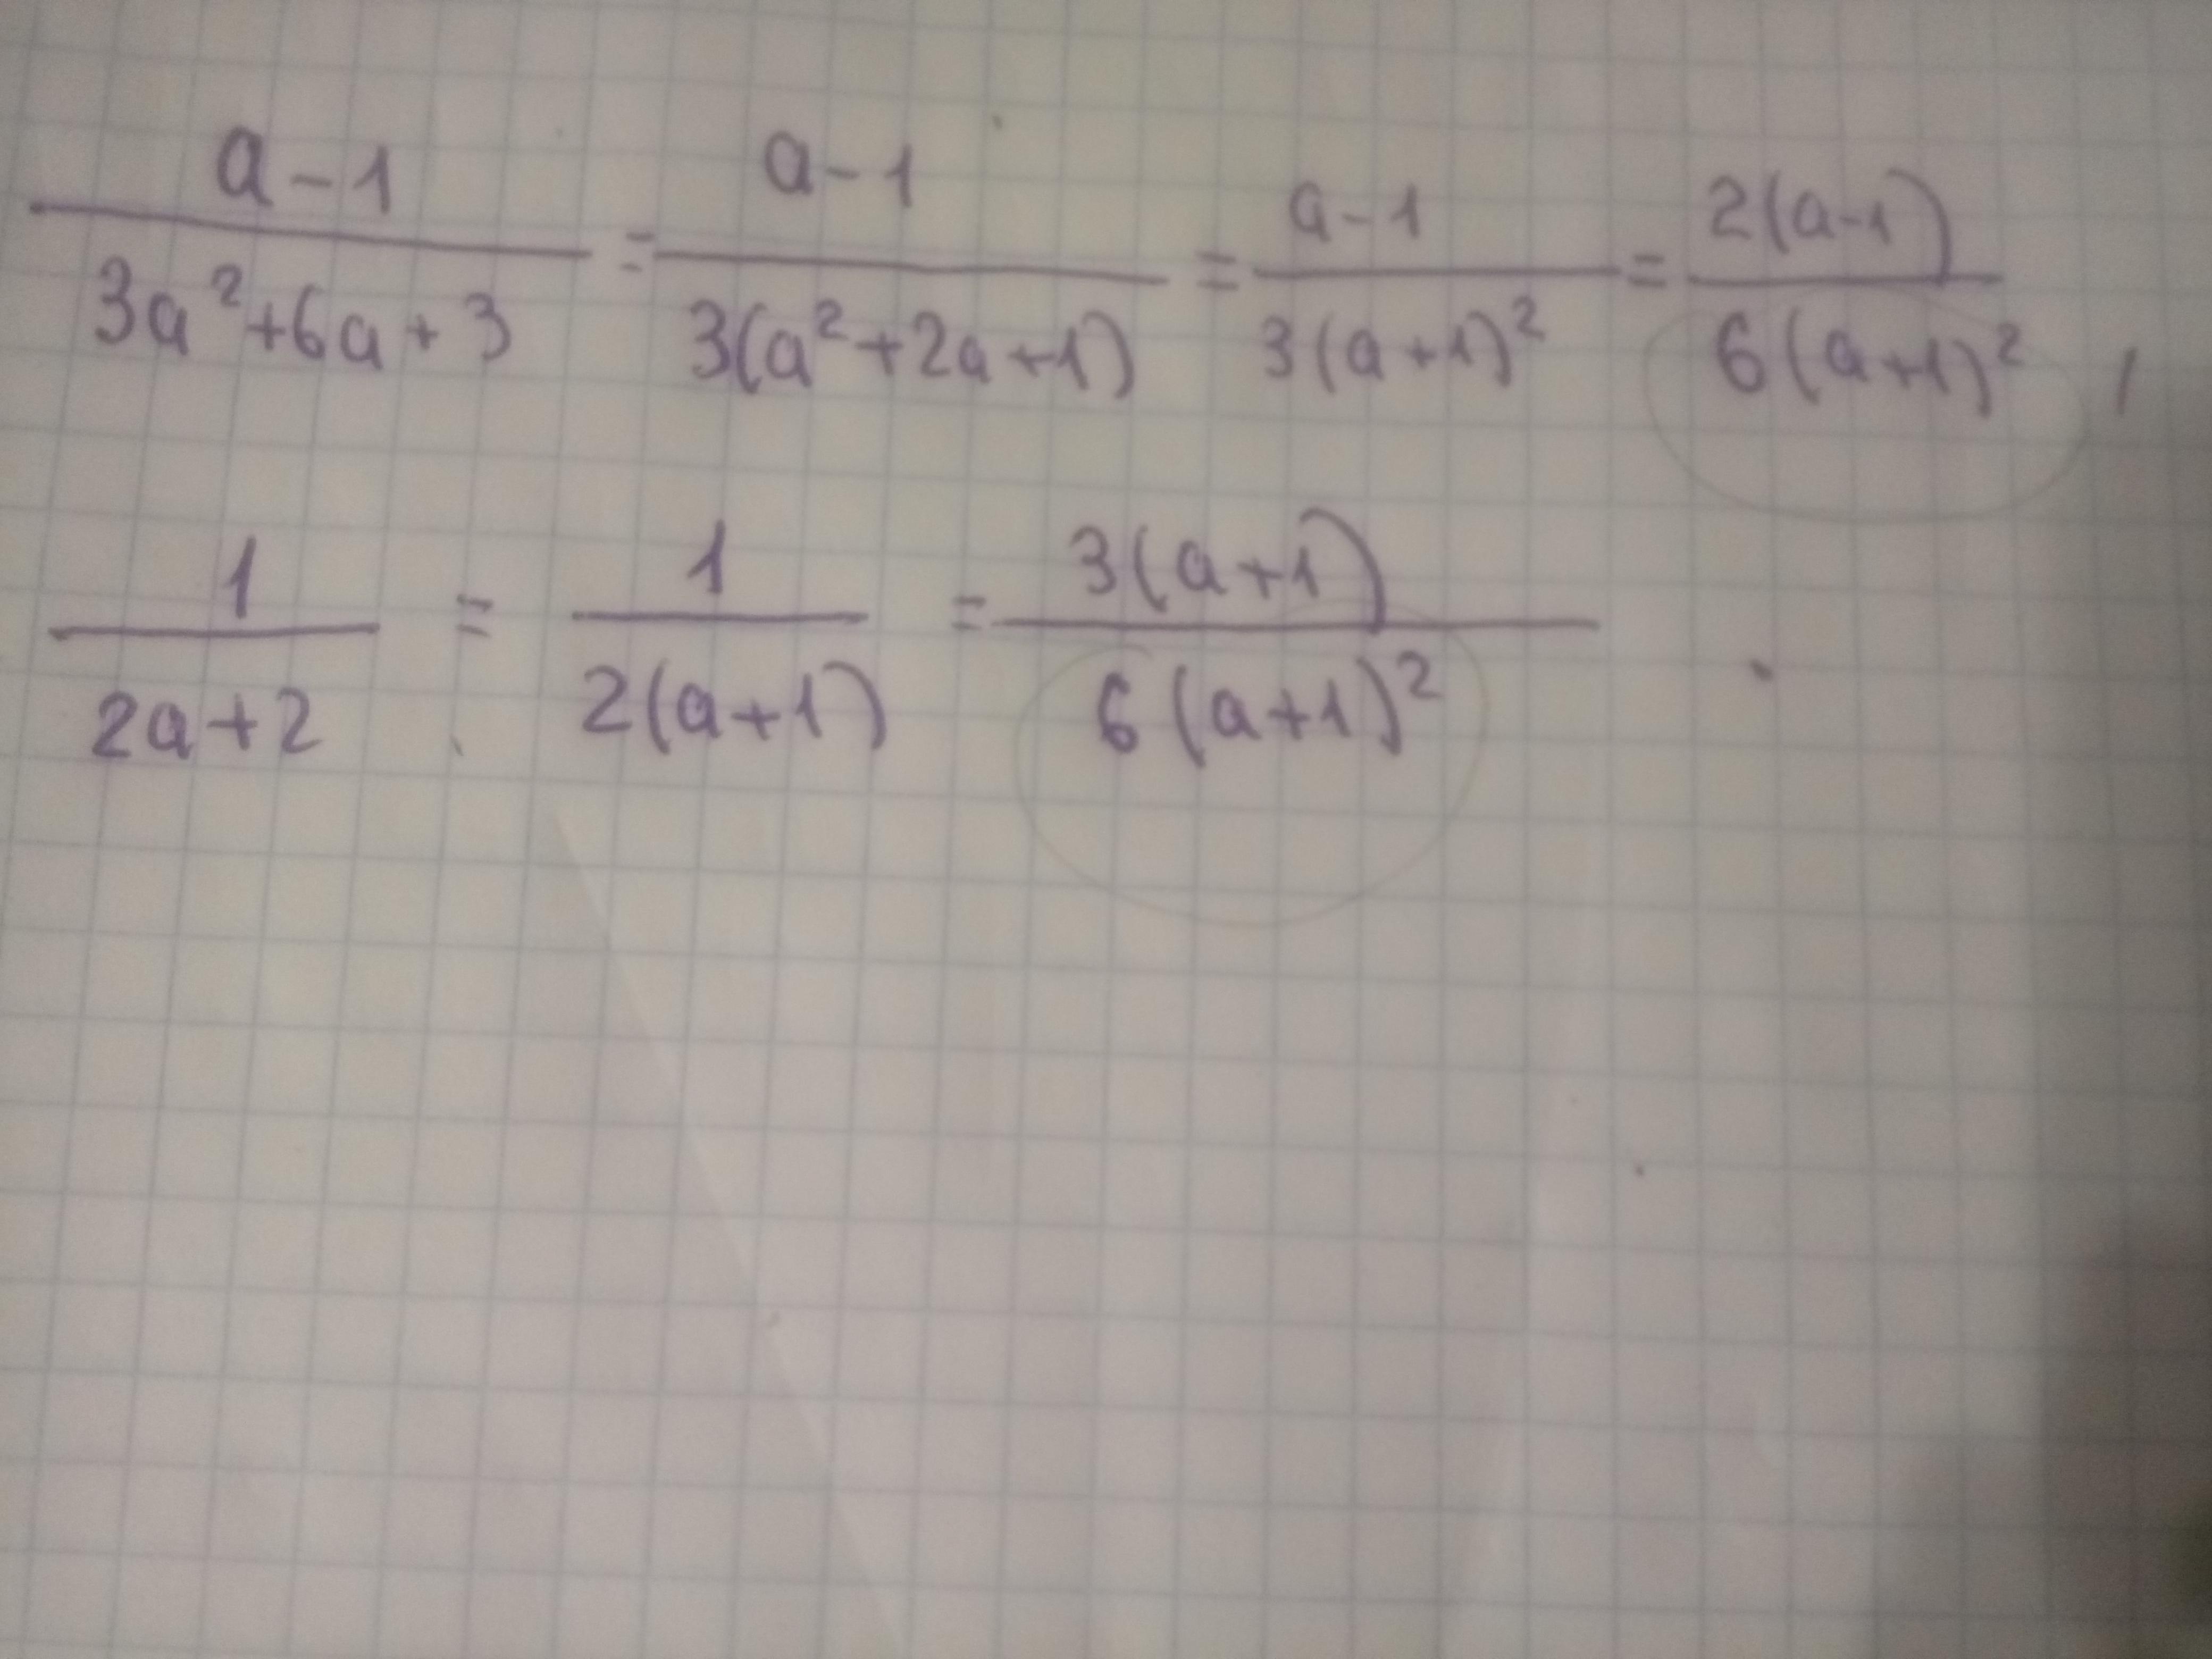 (a-1)/(3a²+6a+3) = (a-1)/(3(a²+2a+1)) = (a-1)/(3(a+1)²) = 2(a-1)/(6(a+1)²),
1/(2a+2) = 1/(2(a+1)) = 3(a+1)/(6(a+1)²).